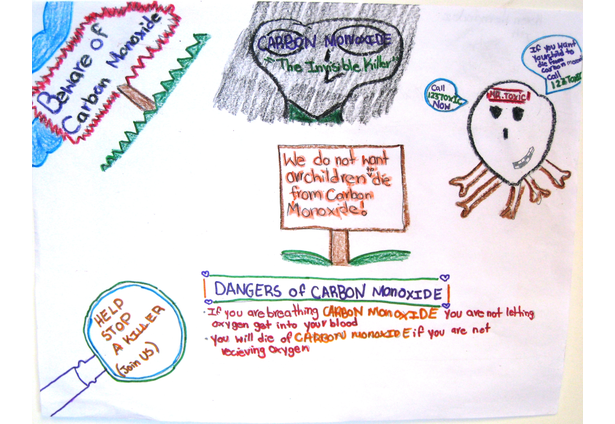 Beware of
Carbon Monoxide
CARBON MONOXIDE
"The Invisible Killer"
If you want
your child to
die from
carbon monoxide
call
123TOXIC
Call
123TOXIC
NOW
MR. TOXIC
We do not want
our children to die
from Carbon
Monoxide!
HELP
STOP
A KILLER
(Join US)
DANGERS of CARBON MONOXIDE
· If you are breathing CARBON MONOXIDE you are not letting
oxygen get into your blood
· You will die of CARBON MONOXIDE if you are not
recieving oxygen